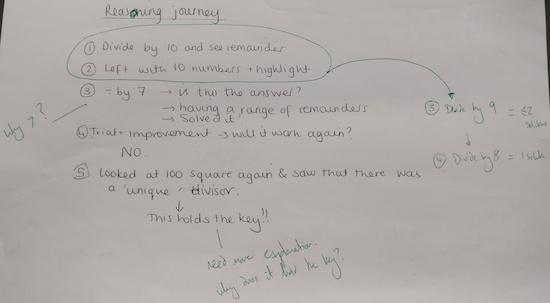 Reasoning journey
① Divide by 10 and see remainder
② Left with 10 numbers + highlight
③ ÷ by 7 → is this the answer?
→ having a range of remainders
→ Solved it
why 7?
④ Trial + improvement → will it work again?
NO.
⑤ Looked at 100 square again & saw that there was
a 'unique' divisor.
↓
This holds the key!!
need more explanation.
why does it hold the key?
③ Divide by 9 =
↓
④ Divide by 8 = 1